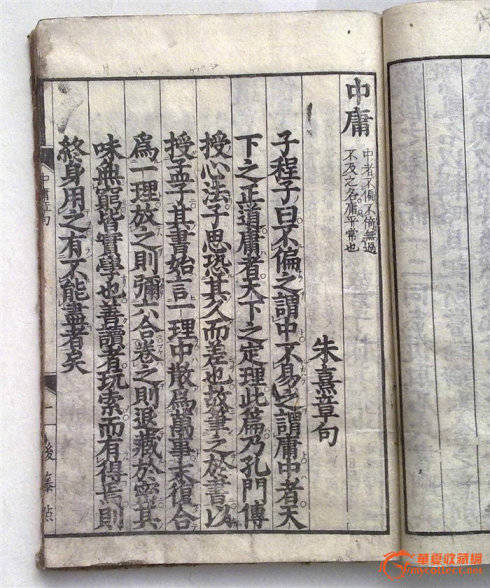 中庸
中者不偏不倚無過
不及之名庸平常也
朱熹章句
子程子曰不偏之謂中不易之謂庸中者天
下之正道庸者天下之定理此篇乃孔門傳
授心法子思恐其久而差也故筆之於書以
授孟子其書始言一理中散爲萬事末復合
爲一理放之則彌六合卷之則退藏於密其
味無窮皆實學也善讀者玩索而有得焉則
終身用之有不能盡者矣
中庸章句
一
後藤點
華夏收藏網
cang.com